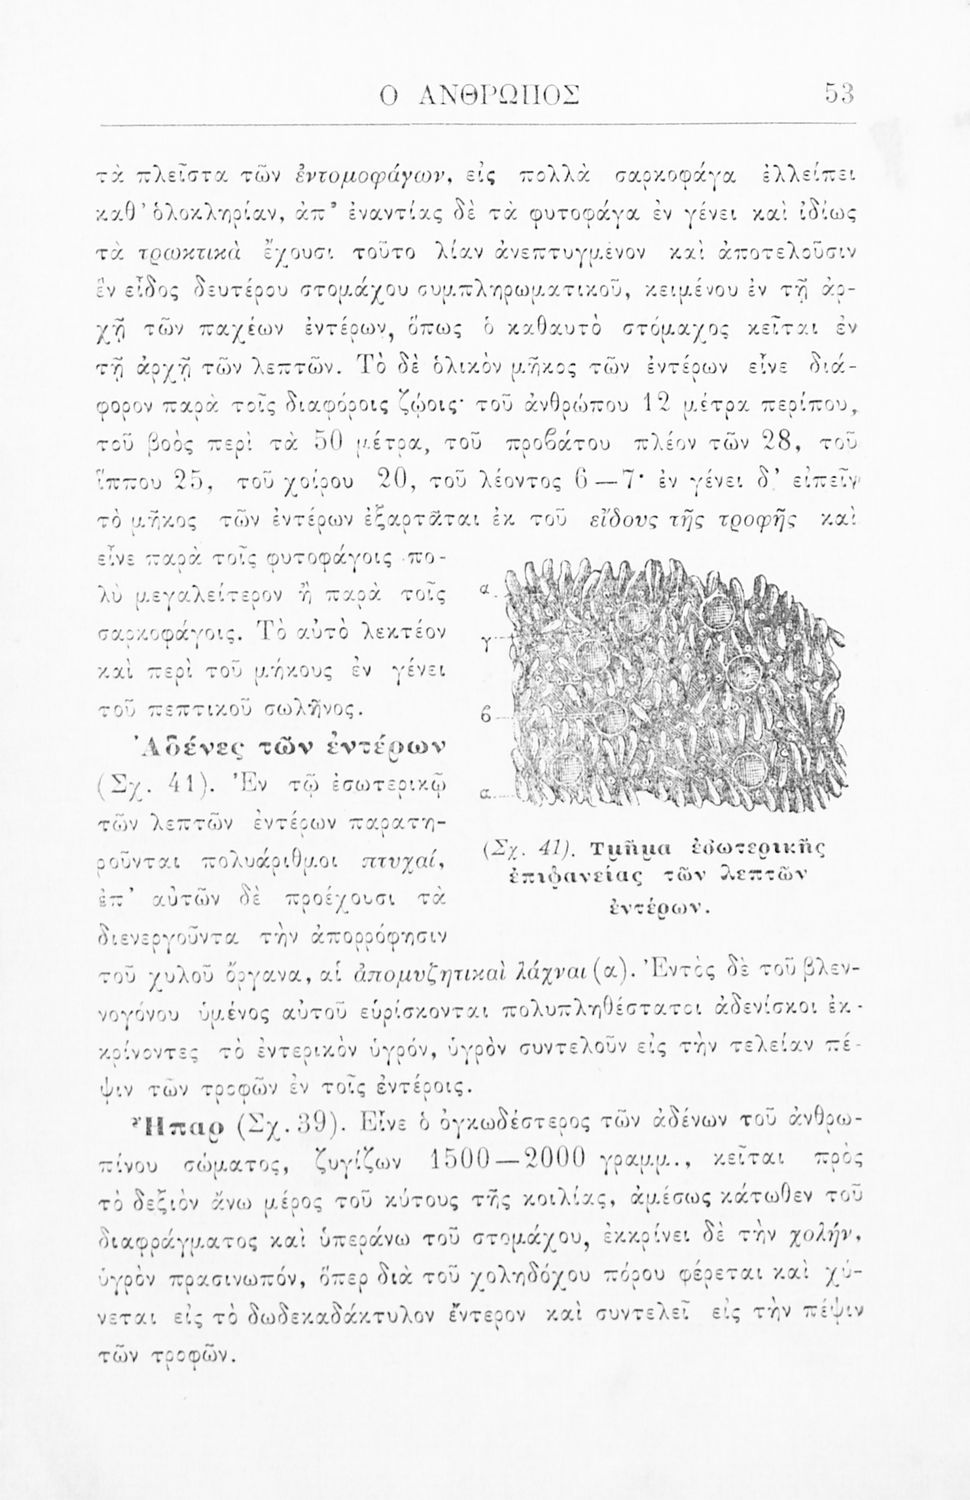 Ο ΑΝΘΡΩΠΟΣ 53
τὰ πλεῖστα τῶν ἐντομοφάγων, εἰς πολλὰ σαρκοφάγα ἐλλείπει
καθ' ὁλοκληρίαν, ἀπ' ἐναντίας δὲ τὰ φυτοφάγα ἐν γένει καὶ ἰδίως
τὰ τρωκτικὰ ἔχουσι τοῦτο λίαν ἀνεπτυγμένον καὶ ἀποτελοῦσιν
ἓν εἶδος δευτέρου στομάχου συμπληρωματικοῦ, κειμένου ἐν τῇ ἀρ-
χῇ τῶν παχέων ἐντέρων, ὅπως ὁ καθαυτὸ στόμαχος κεῖται ἐν
τῇ ἀρχῇ τῶν λεπτῶν. Τὸ δὲ ὁλικὸν μῆκος τῶν ἐντέρων εἶνε διά-
φορον παρὰ τοῖς διαφόροις ζῴοις· τοῦ ἀνθρώπου 12 μέτρα περίπου,
τοῦ βοὸς περὶ τὰ 50 μέτρα, τοῦ προβάτου πλέον τῶν 28, τοῦ
ἵππου 25, τοῦ χοίρου 20, τοῦ λέοντος 6—7· ἐν γένει δ' εἰπεῖν
τὸ μῆκος τῶν ἐντέρων ἐξαρτᾶται ἐκ τοῦ εἴδους τῆς τροφῆς καὶ
εἶνε παρὰ τοῖς φυτοφάγοις πο-
λὺ μεγαλείτερον ἢ παρὰ τοῖς
σαρκοφάγοις. Τὸ αὐτὸ λεκτέον
καὶ περὶ τοῦ μήκους ἐν γένει
τοῦ πεπτικοῦ σωλῆνος.
Ἀδένες τῶν ἐντέρων
(Σχ. 41). Ἐν τῷ ἐσωτερικῷ
τῶν λεπτῶν ἐντέρων παρατη-
ροῦνται πολυάριθμοι πτυχαί,
ἐπ' αὐτῶν δὲ προέχουσι τὰ
διενεργοῦντα τὴν ἀπορρόφησιν
α
γ
β
α
(Σχ. 41). Τμῆμα ἐσωτερικῆς
ἐπιφανείας τῶν λεπτῶν
ἐντέρων.
τοῦ χυλοῦ ὄργανα, αἱ ἀπομυζητικαὶ λάχναι (α). Ἐντὸς δὲ τοῦ βλεν-
νογόνου ὑμένος αὐτοῦ εὑρίσκονται πολυπληθέστατοι ἀδενίσκοι ἐκ-
κρίνοντες τὸ ἐντερικὸν ὑγρόν, ὑγρὸν συντελοῦν εἰς τὴν τελείαν πέ-
ψιν τῶν τροφῶν ἐν τοῖς ἐντέροις.
Ἧπαρ (Σχ. 39). Εἶνε ὁ ὀγκωδέστερος τῶν ἀδένων τοῦ ἀνθρω-
πίνου σώματος, ζυγίζων 1500—2000 γραμμ., κεῖται πρὸς
τὸ δεξιὸν ἄνω μέρος τοῦ κύτους τῆς κοιλίας, ἀμέσως κάτωθεν τοῦ
διαφράγματος καὶ ὑπεράνω τοῦ στομάχου, ἐκκρίνει δὲ τὴν χολήν,
ὑγρὸν πρασινωπόν, ὅπερ διὰ τοῦ χοληδόχου πόρου φέρεται καὶ χύ-
νεται εἰς τὸ δωδεκαδάκτυλον ἔντερον καὶ συντελεῖ εἰς τὴν πέψιν
τῶν τροφῶν.